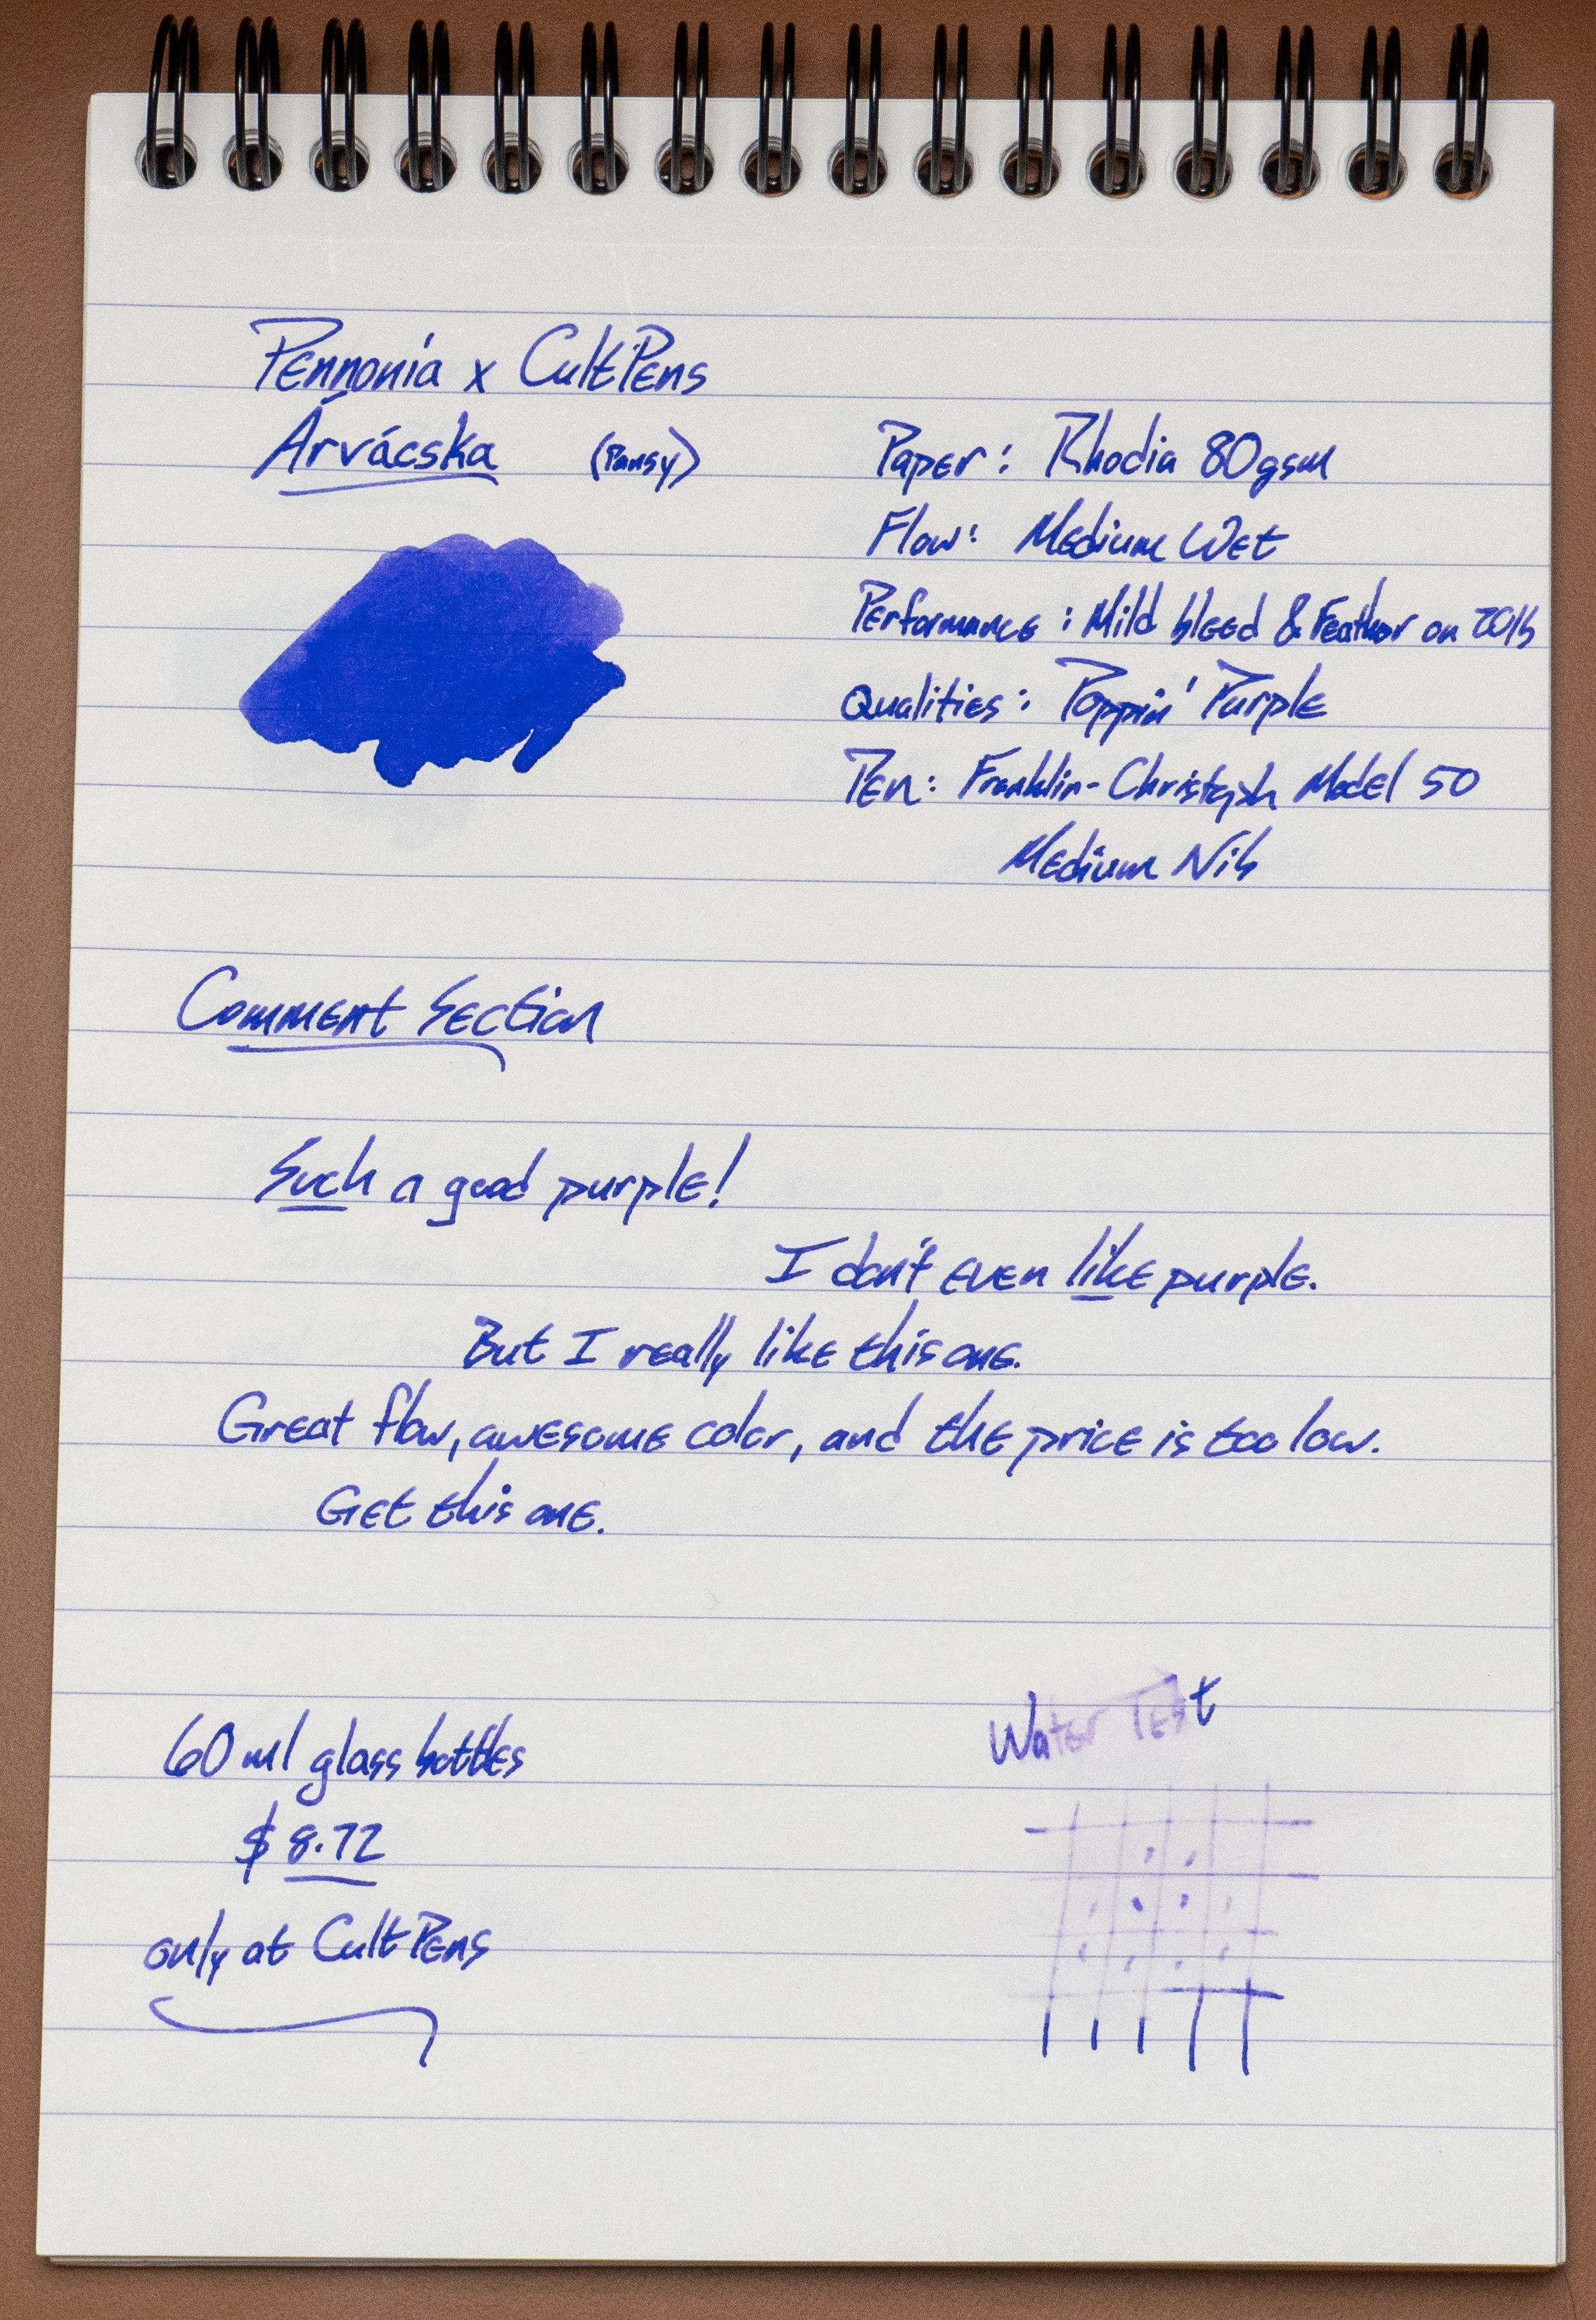 Pennonia x CultPens
Árvácska (Pansy)
Paper: Rhodia 80gsm
Flow: Medium Wet
Performance: Mild bleed & Feather on 20lb
Qualities: Poppin' Purple
Pen: Franklin-Christoph Model 50
Medium Nib
Comment Section
Such a good purple!
I don't even like purple.
But I really like this one.
Great flow, awesome color, and the price is too low.
Get this one.
60 ml glass bottles
$8.72
only at CultPens
Water Test